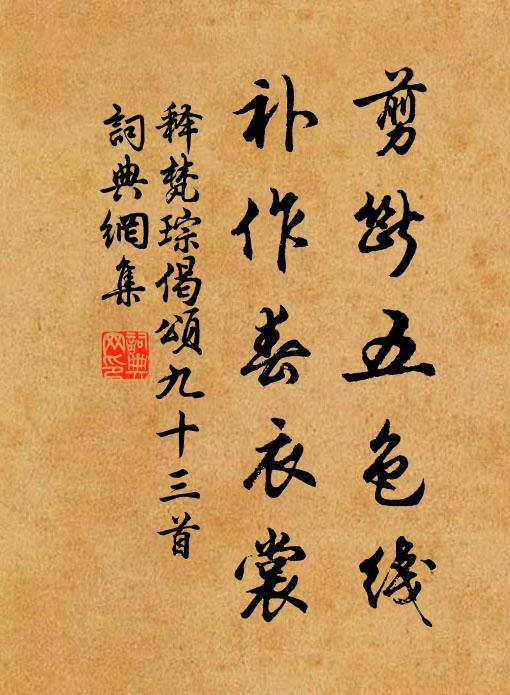 剪断五色线
补作春衣裳
释梵琮偈颂九十三首
詞典網集
詞典网印